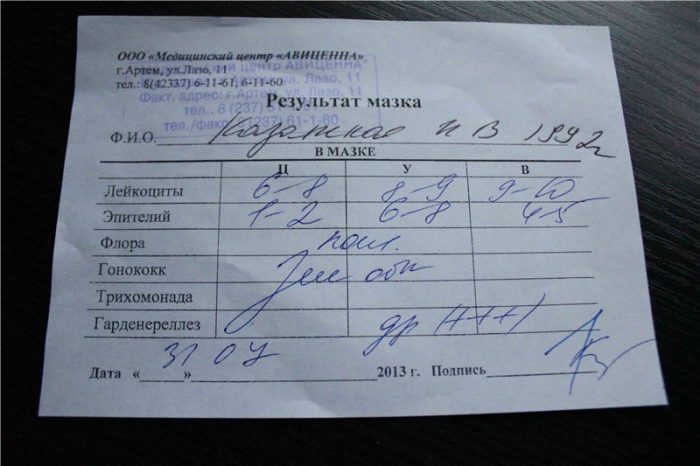 ООО «Медицинский центр «АВИЦЕННА»
г.Артем, ул.Лазо, 11
тел.: 8(42337) 6-11-61, 6-11-60
центр АВИЦЕННА"
ул. Лазо, 11
Факт. адрес: г.Артем, ул. Лазо, 11
тел.: 8 (237)
тел./факс: 8(237) 61-1-60
Результат мазка
Ф.И.О. И В 1992г
В МАЗКЕ
Ц У В
Лейкоциты 6-8 8-9 9-10
Эпителий 1-2 6-8 4-5
Флора пал.
Гонококк
Трихомонада
Гарденереллез др (+++)
Дата «31» 07 2013 г. Подпись